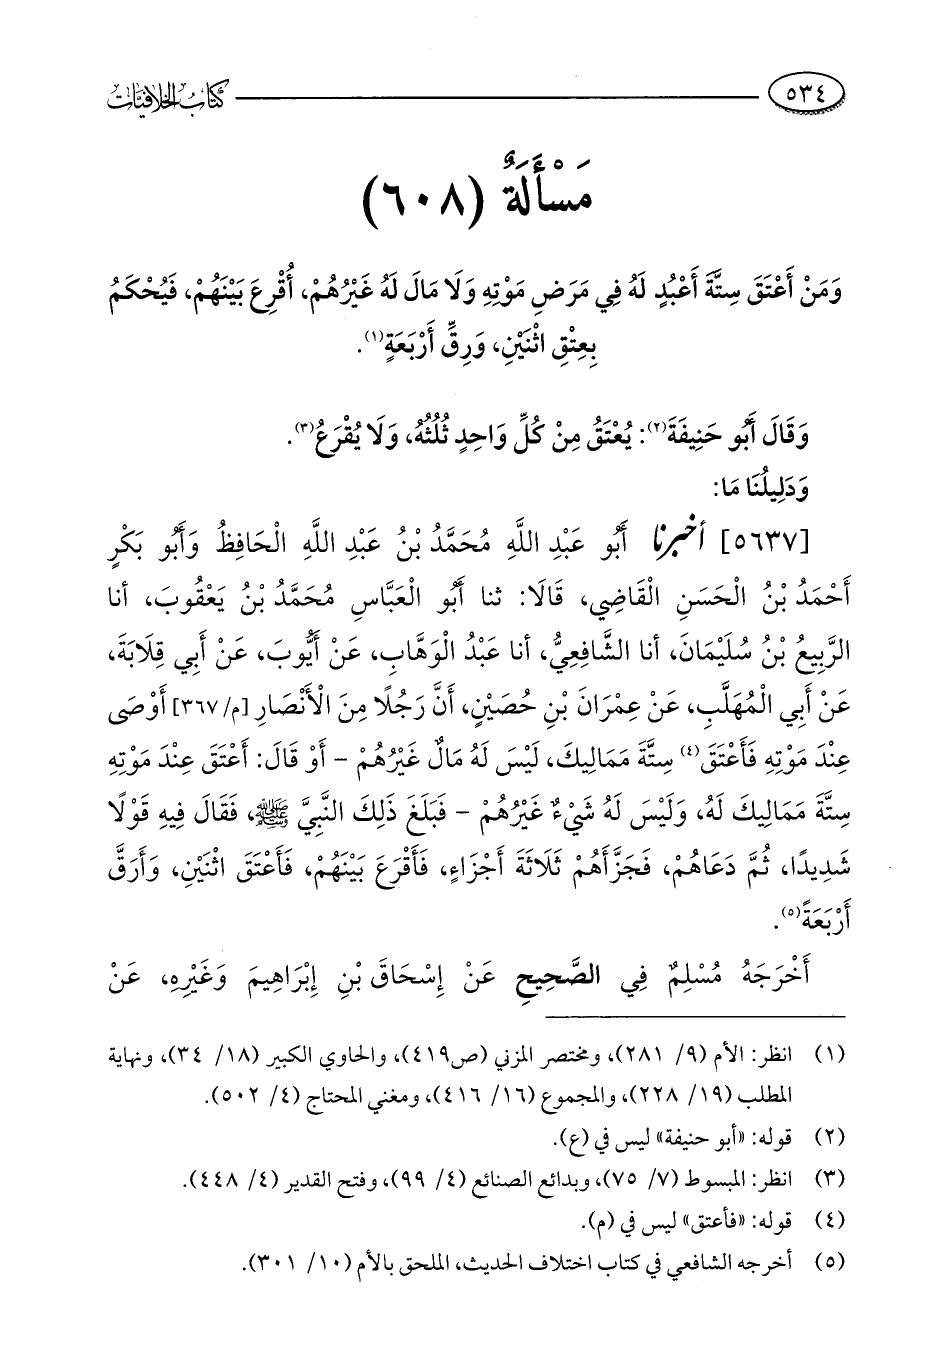 ٥٣٤ كتاب الخلافيات
مَسْأَلَةٌ (٦٠٨)
وَمَنْ أَعْتَقَ سِتَّةَ أَعْبُدٍ لَهُ فِي مَرَضِ مَوْتِهِ وَلَا مَالَ لَهُ غَيْرُهُمْ، أُقْرِعَ بَيْنَهُمْ، فَيُحْكَمُ
بِعِتْقِ اثْنَيْنِ، وَرِقِّ أَرْبَعَةٍ(١).
وَقَالَ أَبُو حَنِيفَةَ(٢): يُعْتَقُ مِنْ كُلِّ وَاحِدٍ ثُلُثُهُ، وَلَا يُقْرَعُ(٣).
وَدَلِيلُنَا مَا:
[٥٦٣٧] أخبرنا أَبُو عَبْدِ اللَّهِ مُحَمَّدُ بْنُ عَبْدِ اللَّهِ الْحَافِظُ وَأَبُو بَكْرٍ
أَحْمَدُ بْنُ الْحَسَنِ الْقَاضِي، قَالَا: ثنا أَبُو الْعَبَّاسِ مُحَمَّدُ بْنُ يَعْقُوبَ، أنا
الرَّبِيعُ بْنُ سُلَيْمَانَ، أنا الشَّافِعِيُّ، أنا عَبْدُ الْوَهَّابِ، عَنْ أَيُّوبَ، عَنْ أَبِي قِلَابَةَ،
عَنْ أَبِي الْمُهَلَّبِ، عَنْ عِمْرَانَ بْنِ حُصَيْنٍ، أَنَّ رَجُلًا مِنَ الْأَنْصَارِ [م/٣٦٧] أَوْصَى
عِنْدَ مَوْتِهِ فَأَعْتَقَ(٤) سِتَّةَ مَمَالِيكَ، لَيْسَ لَهُ مَالٌ غَيْرُهُمْ - أَوْ قَالَ: أَعْتَقَ عِنْدَ مَوْتِهِ
سِتَّةَ مَمَالِيكَ لَهُ، وَلَيْسَ لَهُ شَيْءٌ غَيْرُهُمْ - فَبَلَغَ ذَلِكَ النَّبِيَّ ﷺ، فَقَالَ فِيهِ قَوْلًا
شَدِيدًا، ثُمَّ دَعَاهُمْ، فَجَزَّأَهُمْ ثَلَاثَةَ أَجْزَاءٍ، فَأَقْرَعَ بَيْنَهُمْ، فَأَعْتَقَ اثْنَيْنِ، وَأَرَقَّ
أَرْبَعَةً(٥).
أَخْرَجَهُ مُسْلِمٌ فِي الصَّحِيحِ عَنْ إِسْحَاقَ بْنِ إِبْرَاهِيمَ وَغَيْرِهِ، عَنْ
(١) انظر: الأم (٩/ ٢٨١)، ومختصر المزني (ص٤١٩)، والحاوي الكبير (١٨/ ٣٤)، ونهاية
المطلب (١٩/ ٢٢٨)، والمجموع (١٦/ ٤١٦)، ومغني المحتاج (٤/ ٥٠٢).
(٢) قوله: «أبو حنيفة» ليس في (ع).
(٣) انظر: المبسوط (٧/ ٧٥)، وبدائع الصنائع (٤/ ٩٩)، وفتح القدير (٤/ ٤٤٨).
(٤) قوله: «فأعتق» ليس في (م).
(٥) أخرجه الشافعي في كتاب اختلاف الحديث، الملحق بالأم (١٠/ ٣٠١).